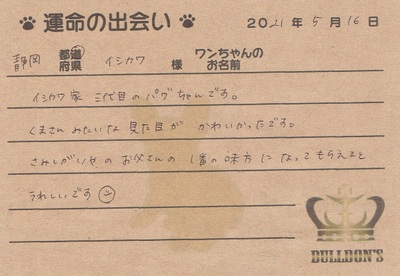 運命の出会い 2021年5月16日
静岡 都道府県 イシカワ 様 ワンちゃんのお名前
イシカワ家 三代目のパグちゃんです。
くまさんみたいな見た目が かわいかったです。
さみしがりやのお父さんの 1番の味方になってもらえると
うれしいです
BULLDON'S